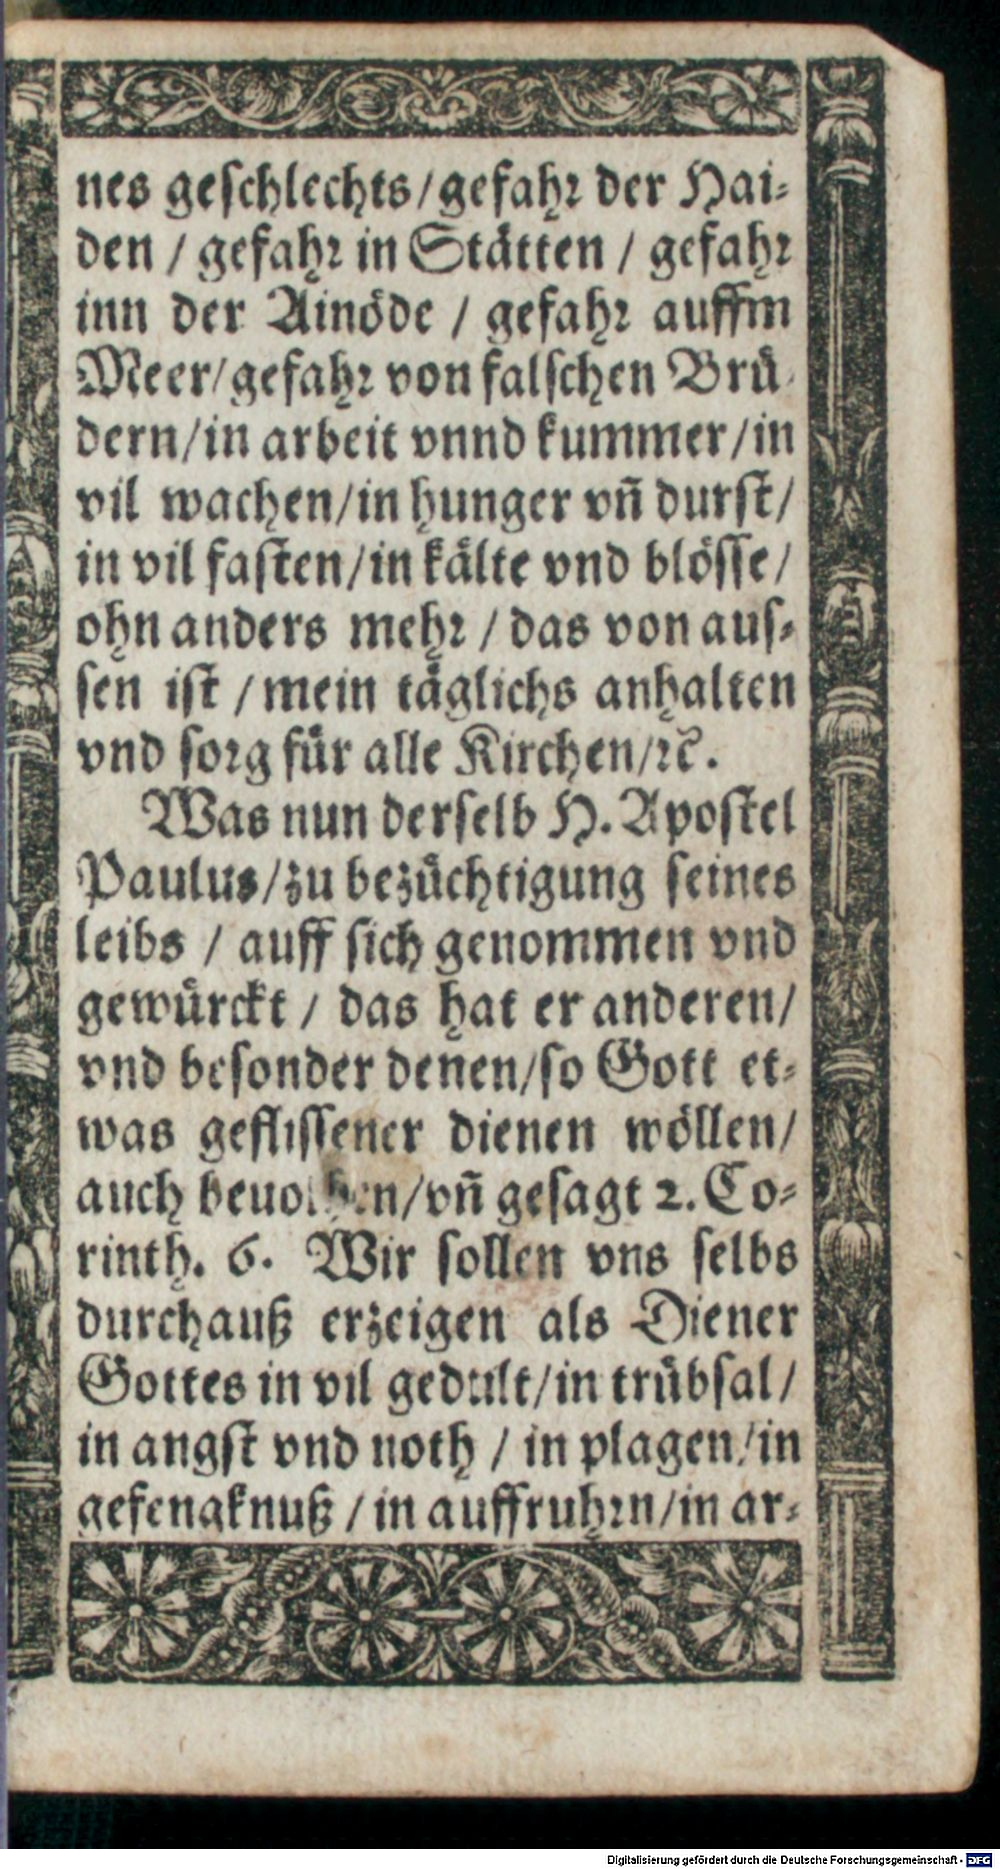 nes geschlechts/gefahr der Hai-
den / gefahr in Stätten / gefahr
inn der Ainöde / gefahr auffm
Meer/gefahr von falschen Brü-
dern/in arbeit vnnd kummer/in
vil wachen/in hunger vñ durst/
in vil fasten/in kälte vnd blösse/
ohn anders mehr / das von aus-
sen ist / mein täglichs anhalten
vnd sorg für alle Kirchen/ꝛc̄.
Was nun derselb H. Apostel
Paulus/zu bezüchtigung seines
leibs / auff sich genommen vnd
gewürckt / das hat er anderen/
vnd besonder denen/so Gott et-
was geflissener dienen wöllen/
auch /vñ gesagt 2. Co-
rinth. 6. Wir sollen vns selbs
durchauß erzeigen als Diener
Gottes in vil gedult/in trübsal/
in angst vnd noth / in plagen/in
gefengknuß / in auffruhrn/in ar-
Digitalisierung gefördert durch die Deutsche Forschungsgemeinschaft - DFG